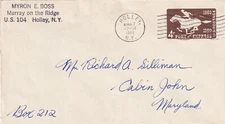 MYRON E. BOSS
Murray on the Ridge
U.S. 104 Holley, N.Y.
HOLLEY
N.Y.
4¢
PONY EXPRESS
Mr. Richard A. Silliman
Cabin John
Maryland
Box 212